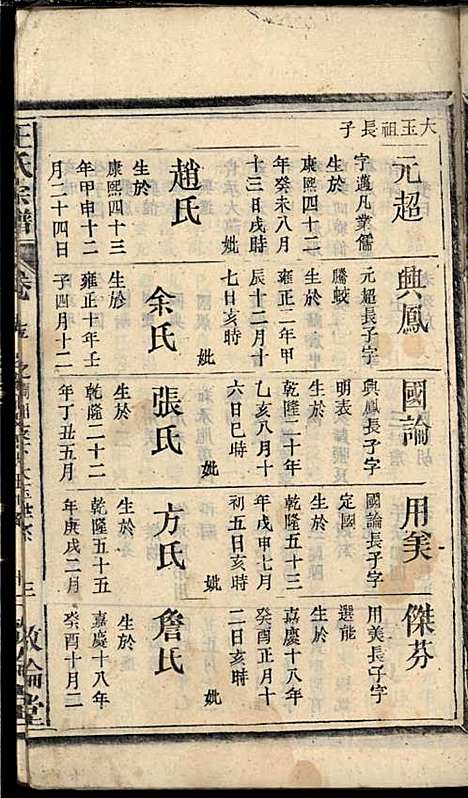 大玉祖長子
元超
字邁凡業儒
生於
康熙四十二
年癸未八月
十三日戌時
妣
趙氏
生於
康熙四十三
年甲申十二
月二十四日
興鳳
元超長子字
騰蛟
生於
雍正二年甲
辰十二月十
七日亥時
妣
余氏
生於
雍正十年壬
子四月十二
國論
興鳳長子字
明表
生於
乾隆二十年
乙亥八月十
六日巳時
妣
張氏
生於
乾隆二十二
年丁丑五月
用美
國論長子字
定國
生於
乾隆五十三
年戊申七月
初五日亥時
妣
方氏
生於
乾隆五十五
年庚戌二月
傑芬
用美長子字
選能
生於
嘉慶十八年
癸酉正月十
二日亥時
妣
詹氏
生於
嘉慶十八年
癸酉十月二
王氏宗譜
卷
敦倫堂